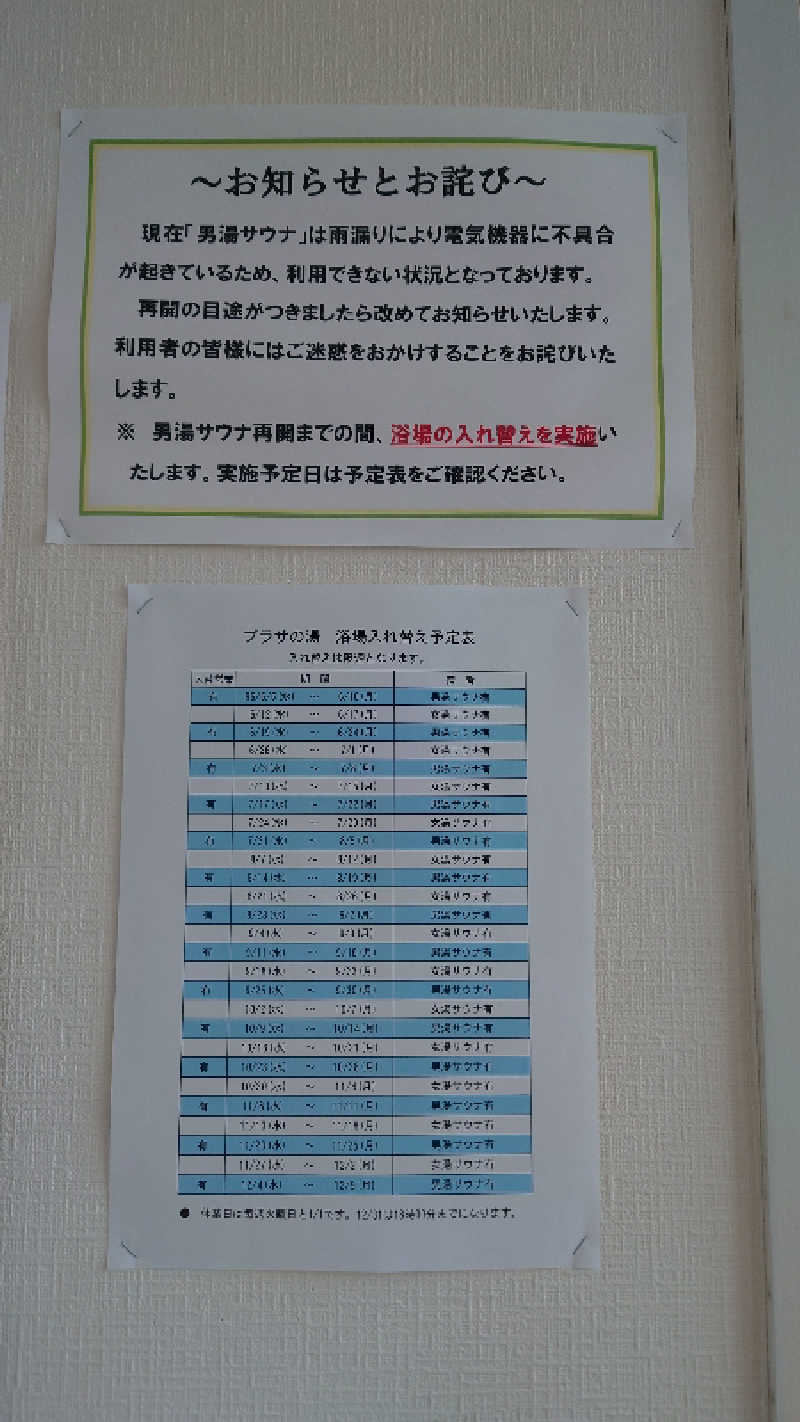 ～お知らせとお詫び～
現在「男湯サウナ」は雨漏りにより電気機器に不具合
が起きているため、利用できない状況となっております。
再開の目途がつきましたら改めてお知らせいたします。
利用者の皆様にはご迷惑をおかけすることをお詫びいた
します。
※ 男湯サウナ再開までの間、浴場の入れ替えを実施い
たします。実施予定日は予定表をご確認ください。
プラザの湯 浴場入れ替え予定表
入れ替えは隔週となります。
期間
男湯サウナ有
6/12(水) ～ 6/17(月) 女湯サウナ有
有 6/19(水) ～ 6/24(月) 男湯サウナ有
6/26(水) ～ 7/1(月) 女湯サウナ有
有 男湯サウナ有
女湯サウナ有
有 7/17(水) ～ 7/22(月) 男湯サウナ有
7/24(水) ～ 7/29(月) 女湯サウナ有
有 7/31(水) ～ 8/5(月) 男湯サウナ有
8/7(水) ～ 8/12(月) 女湯サウナ有
有 8/14(水) ～ 8/19(月) 男湯サウナ有
8/21(水) ～ 8/26(月) 女湯サウナ有
有 8/28(水) ～ 男湯サウナ有
9/4(水) ～ 9/9(月) 女湯サウナ有
有 9/11(水) ～ 9/16(月) 男湯サウナ有
9/18(水) ～ 9/23(月) 女湯サウナ有
有 9/25(水) ～ 9/30(月) 男湯サウナ有
10/2(水) ～ 10/7(月) 女湯サウナ有
有 10/9(水) ～ 10/14(月) 男湯サウナ有
10/16(水) ～ 10/21(月) 女湯サウナ有
有 10/23(水) ～ 10/28(月) 男湯サウナ有
10/30(水) ～ 11/4(月) 女湯サウナ有
有 11/6(水) ～ 11/11(月) 男湯サウナ有
11/13(水) ～ 11/18(月) 女湯サウナ有
有 11/20(水) ～ 11/25(月) 男湯サウナ有
11/27(水) ～ 12/2(月) 女湯サウナ有
有 12/4(水) ～ 12/9(月) 男湯サウナ有
● 休業日は毎週火曜日と1/1です。12/31は
までになります。